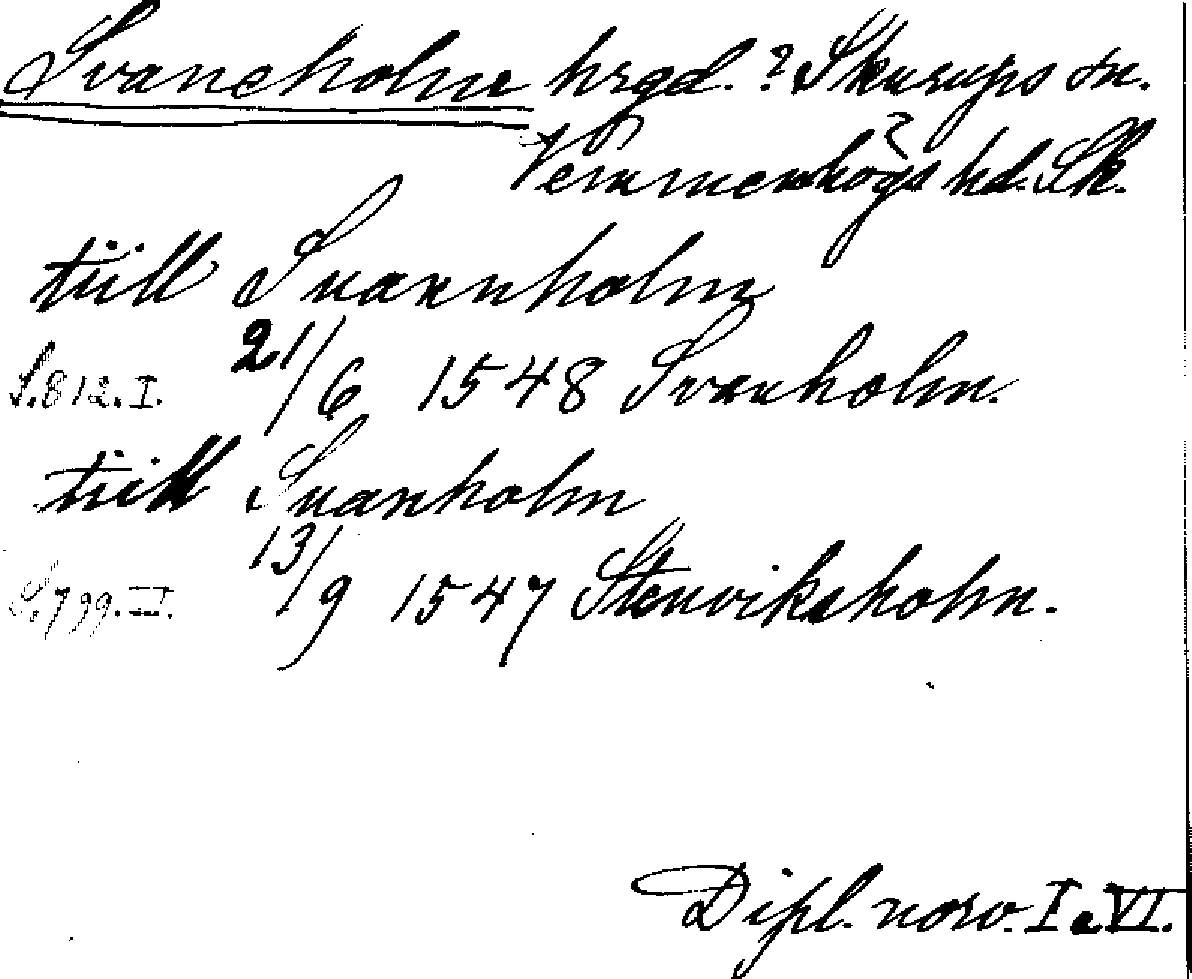 Svaneholm hrgd. ? Skurups sn.
Vemmenhögs hd. Sk.
tiill Suannholm
S. 812. I. 21/6 1548 Svanholm.
tiill Suanholm
S. 799. II. 13/9 1547 Stenviksholm.
Dipl. norv. I a VI.